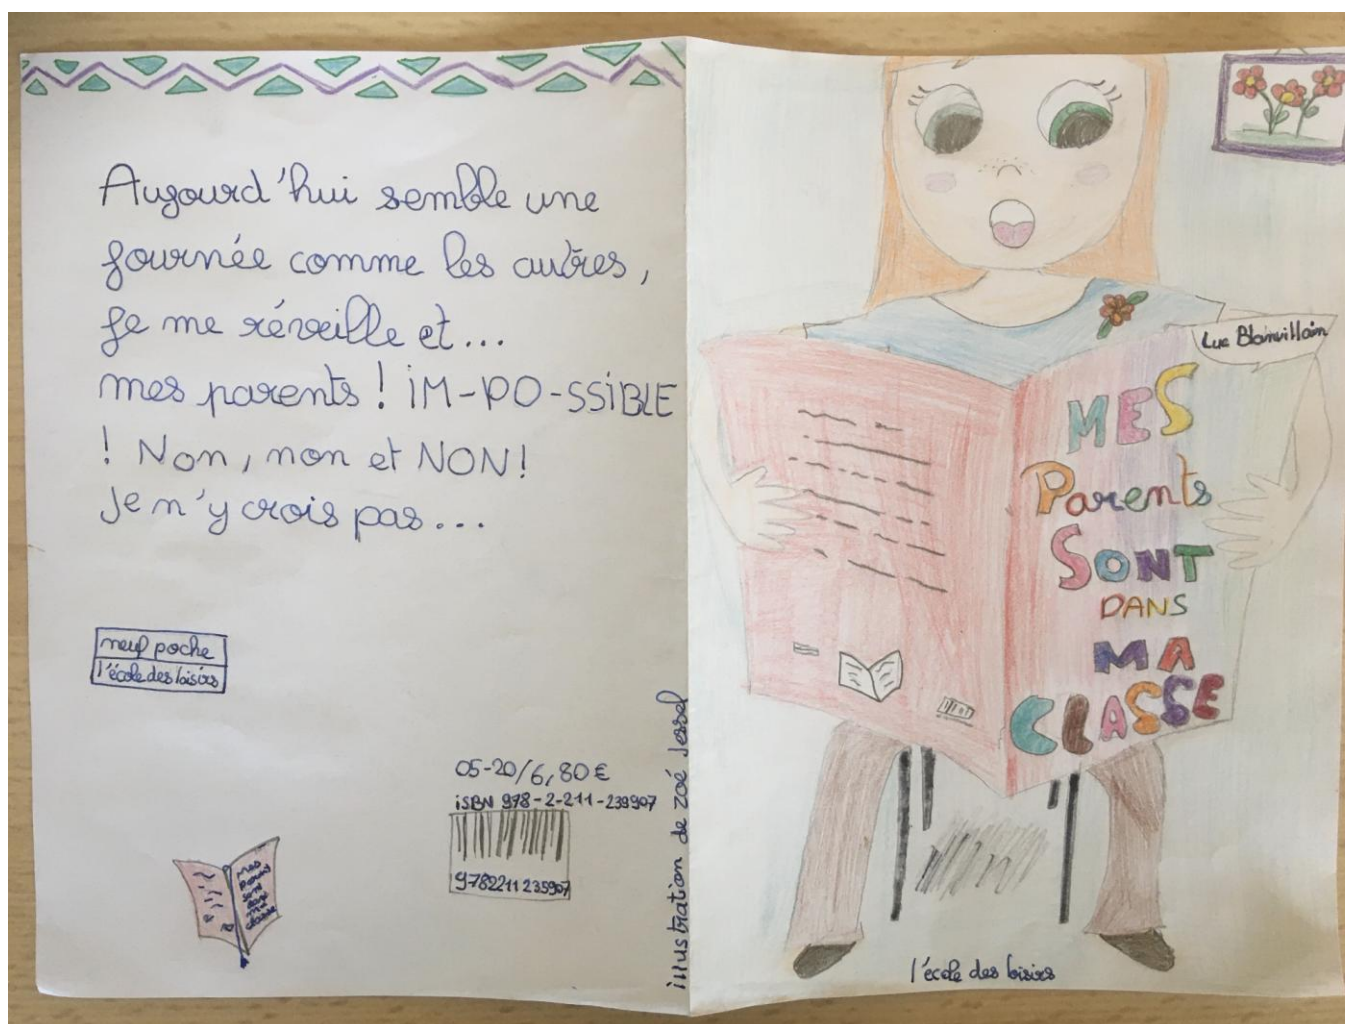 Aujourd'hui semble une
journée comme les autres,
je me réveille et...
mes parents ! iM-PO-SSiBLE
! Non, non et NON!
Je n'y crois pas...
neuf poche
l'école des loisirs
05-20/6,80€
iSBN 978-2-211-239907
9782211235907
illustration de zoé Jessel
Luc Blanvillain
MES
Parents
SONT
DANS
MA
CLASSE
l'école des loisirs
mes
parents
sont
dans
ma
classe